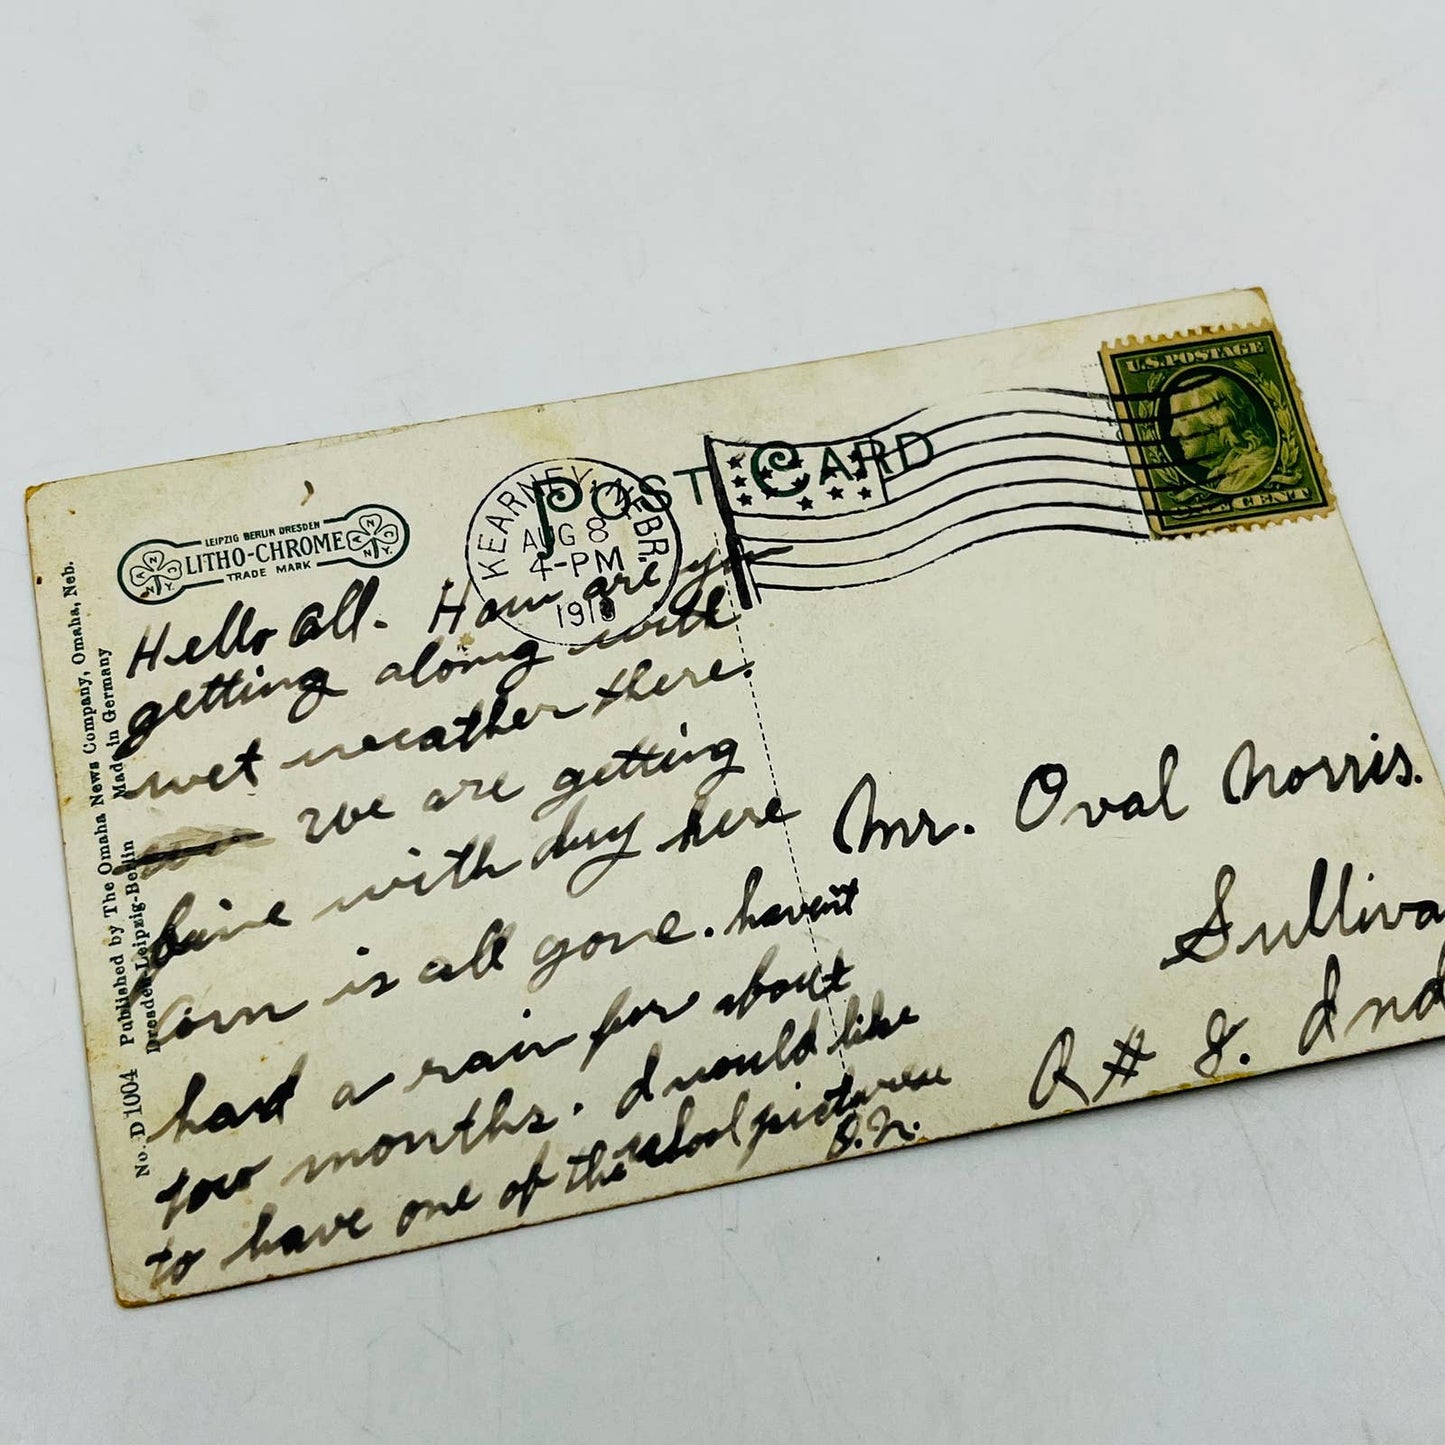 LEIPZIG BERLIN DRESDEN
LITHO-CHROME
TRADE MARK
POST CARD
KEARNEY, NEBR.
AUG 8
4-PM
1910
U.S. POSTAGE
ONE CENT
No. D 1004 Published by The Omaha News Company, Omaha, Neb.
Dresden-Leipzig-Berlin Made in Germany
Hello all. How are you
getting along with
wet weather there.
we are getting
fine with dry here
Corn is all gone. havent
had a rain for about
tow months. I would like
to have one of the school pictures
O.N.
Mr. Oval Norris.
Sulliva
R # 8. Ind